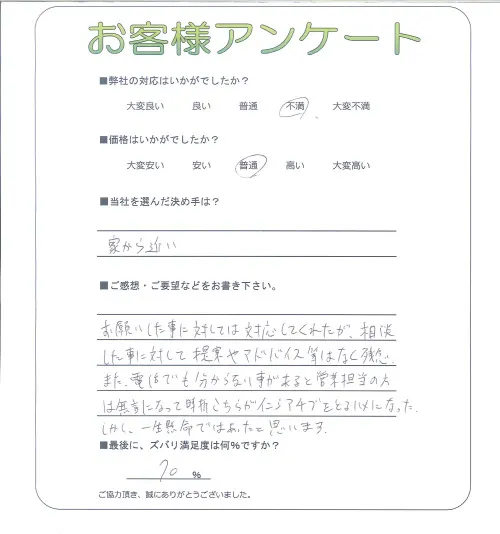 お客様アンケート
■弊社の対応はいかがでしたか?
大変良い 良い 普通 不満 大変不満
■価格はいかがでしたか?
大変安い 安い 普通 高い 大変高い
■当社を選んだ決め手は?
家から近い
■ご感想・ご要望などをお書き下さい。
お願いした事に対しては対応してくれたが、相談
した事に対して提案やアドバイス等はなく残念.
また、電話でも分からない事があると営業担当の方
は無言になって時折こちらがイニシアチブをとるハメになった.
しかし、一生懸命ではあったと思います.
■最後に、ズバリ満足度は何%ですか?
70 %
ご協力頂き、誠にありがとうございました。